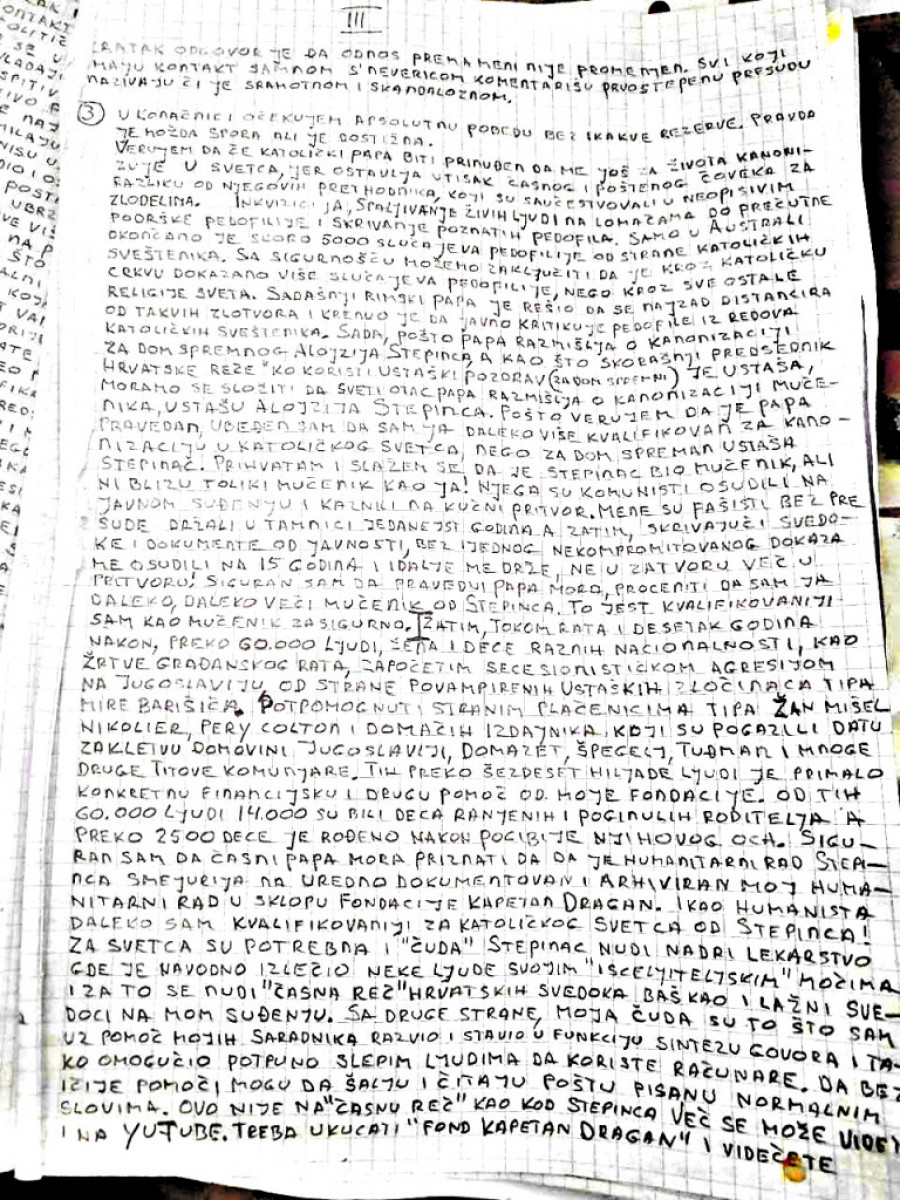 III
KRATAK ODGOVOR JE DA ODNOS PREMA MENI NIJE PROMENJEN. SVI KOJI
IMAJU KONTAKT SAMNOM S'NEVERICOM KOMENTARIŠU PRVOSTEPENU PRESUDU
NAZIVAJUĆI JE SRAMOTNOM I SKANDALOZNOM.
3 U KONAČNICI OČEKUJEM APSOLUTNU POBEDU BEZ IKAKVE REZERVE. PRAVDA
JE MOŽDA SPORA ALI JE DOSTIŽNA.
VERUJEM DA ĆE KATOLIČKI PAPA BITI PRINUĐEN DA ME JOŠ ZA ŽIVOTA KANONI-
ZUJE U SVETCA, JER OSTAVLJA UTISAK ČASNOG I POŠTENOG ČOVEKA ZA
RAZLIKU OD NJEGOVIH PRETHODNIKA, KOJI SU SAUČESTVOVALI U NEOPISIVIM
ZLODELIMA. INKVIZICIJA, SPALJIVANJE ŽIVIH LJUDI NA LOMAČAMA DO PREĆUTNE
PODRŠKE PEDOFILIJE I SKRIVANJE POZNATIH PEDOFILA. SAMO U AUSTRALI
OKONČANO JE SKORO 5000 SLUČAJEVA PEDOFILIJE OD STRANE KATOLIČKIH
SVEŠTENIKA. SA SIGURNOŠĆU MOŽEMO ZAKLJUČITI DA JE KROZ KATOLIČKU
CRKVU DOKAZANO VIŠE SLUČAJEVA PEDOFILIJE, NEGO KROZ SVE OSTALE
RELIGIJE SVETA. SADAŠNJI RIMSKI PAPA JE REŠIO DA SE NAJZAD DISTANCIRA
OD TAKVIH ZLOTVORA I KRENUO JE DA JAVNO KRITIKUJE PEDOFILE IZ REDOVA
KATOLIČKIH SVEŠTENIKA. SADA, POŠTO PAPA RAZMIŠLJA O KANONIZACIJI
ZA DOM SPREMNOG ALOJZIJA STEPINCA, A KAO ŠTO SKORAŠNJI PREDSEDNIK
HRVATSKE REČE "KO KORISTI USTAŠKI POZDRAV (ZA DOM SPREMNI) JE USTAŠA,
MORAMO SE SLOŽITI DA SVETI OTAC PAPA RAZMIŠLJA O KANONIZACIJI MUČE-
NIKA, USTAŠU ALOJZIJA STEPINCA. POŠTO VERUJEM DA JE PAPA
PRAVEDAN, UBEĐEN SAM DA SAM JA DALEKO VIŠE KVALIFIKOVAN ZA KANO-
NIZACIJU U KATOLIČKOG SVETCA, NEGO ZA DOM SPREMAN USTAŠA
STEPINAC. PRIHVATAM I SLAŽEM SE DA JE STEPINAC BIO MUČENIK, ALI
NI BLIZU TOLIKI MUČENIK KAO JA! NJEGA SU KOMUNISTI OSUDILI NA
JAVNOM SUĐENJU I KAZNILI NA KUĆNI PRITVOR. MENE SU FAŠISTI BEZ PRE
SUDE DRŽALI U TAMNICI JEDANEJST GODINA A ZATIM, SKRIVAJUĆI SVEDO-
KE I DOKUMENTE OD JAVNOSTI, BEZ IJEDNOG NEKOMPROMITOVANOG DOKAZA
ME OSUDILI NA 15 GODINA I IDALJE ME DRŽE, NE U ZATVORU VEČ U
PRITVORU! SIGURAN SAM DA PRAVEDNI PAPA MORA, PROCENITI DA SAM JA
DALEKO, DALEKO VEČI MUČENIK OD STEPINCA. TO JEST KVALIFIKOVANIJI
SAM KAO MUČENIK ZASIGURNO. ZATIM, TOKOM RATA I DESETAK GODINA
NAKON, PREKO 60.000 LJUDI, ŽENA I DECE RAZNIH NACIONALNOSTI, KAO
ŽRTVE GRAĐANSKOG RATA, ZAPOČETIM SECESIONISTIČKOM AGRESIJOM
NA JUGOSLAVIJU, OD STRANE POVAMPIRENIH USTAŠKIH ZLOČINACA TIPA
MIRE BARIŠIĆA. POTPOMOGNUTI STRANIM PLAĆENICIMA TIPA ŽAN MIŠEL
NIKOLIER, PERY COLTON I DOMAČIH IZDAJNIKA, KOJI SU POGAZILI DATU
ZAKLETVU DOMOVINI JUGOSLAVIJI, DOMAZET, ŠPEGELJ, TUĐMAN I MNOGE
DRUGE TITOVE KOMUNJARE. TIH PREKO ŠEZDESET HILJADE LJUDI JE PRIMALO
KONKRETNU FINANCIJSKU I DRUGU POMOĆ OD MOJE FONDACIJE. OD TIH
60.000 LJUDI 14.000 SU BILI DECA RANJENIH I POGINULIH RODITELJA A
PREKO 2500 DECE JE ROĐENO NAKON POGIBIJE NJIHOVOG OCA. SIGU-
RAN SAM DA ČASNI PAPA MORA PRIZNATI DA DA JE HUMANITARNI RAD STEPI-
NCA SMEJURIJA NA UREDNO DOKUMENTOVAN I ARHIVIRAN MOJ HUMA-
NITARNI RAD U SKLOPU FONDACIJE KAPETAN DRAGAN. I KAO HUMANISTA
DALEKO SAM KVALIFIKOVANIJI ZA KATOLIČKOG SVETCA OD STEPINCA!
ZA SVETCA SU POTREBNA I "ČUDA" STEPINAC NUDI NADRI LEKARSTVO
GDE JE NAVODNO IZLEČIO NEKE LJUDE SVOJIM "ISCELJITELJSKIM" MOČIMA
I ZA TO SE NUDI "ČASNA REČ" HRVATSKIH SVEDOKA BAŠ KAO I LAŽNI SVE-
DOCI NA MOM SUĐENJU. SA DRUGE STRANE, MOJA ČUDA SU TO ŠTO SAM
UZ POMOĆ MOJIH SARADNIKA RAZVIO I STAVIO U FUNKCIJU SINTEZU GOVORA I TA-
KO OMOGUČIO POTPUNO SLEPIM LJUDIMA DA KORISTE RAČUNARE. DA BEZ
IČIJE POMOĆI MOGU DA ŠALJU I ČITAJU POŠTU PISANU NORMALNIM
SLOVIMA. OVO NIJE NA "ČASNU REČ" KAO KOD STEPINCA VEČ SE MOŽE VIDE
I NA YUTUBE. TREBA UKUCATI "FOND KAPETAN DRAGAN" I VIDEČETE